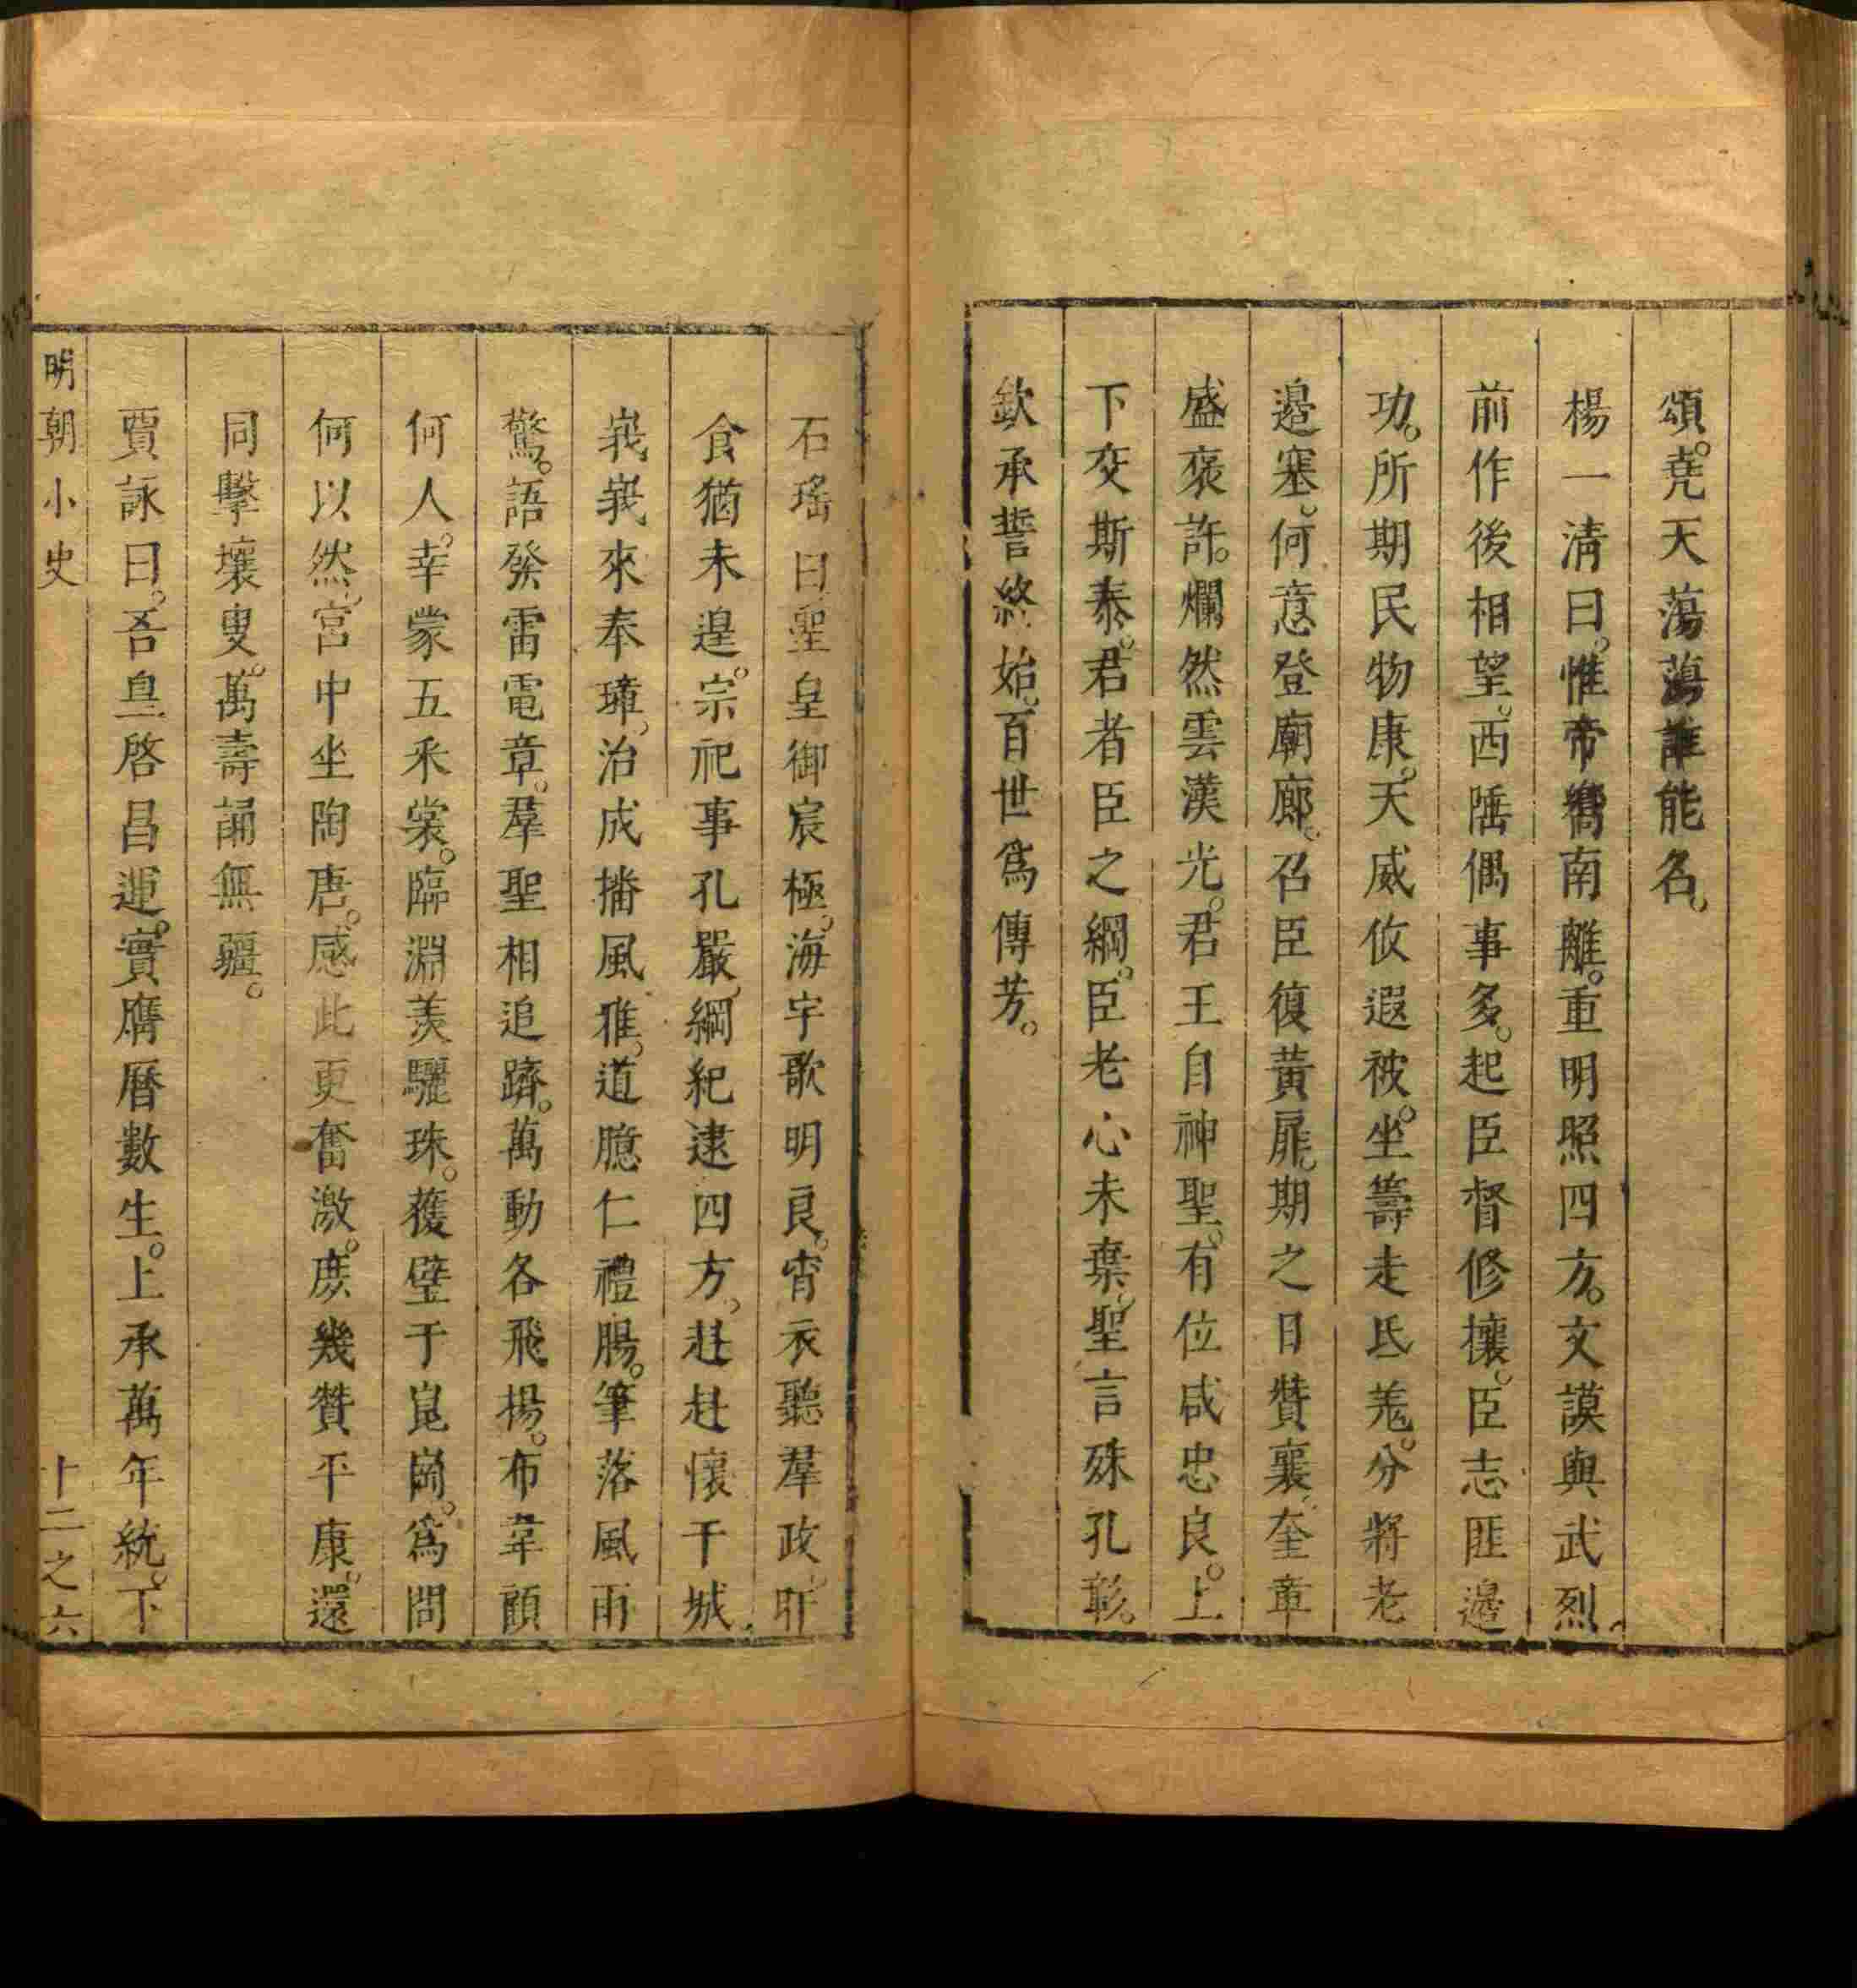 頌。堯天蕩蕩誰能名。
楊一清曰。惟帝嚮南離。重明照四方。文謨與武烈。
前作後相望。西陲偶事多。起臣督修攘。臣志匪邉
功。所期民物康。天威攸遐被。坐籌走氐羗。分將老
邉塞。何意登廟廊。召臣復黃扉。期之日贊襄。奎章
盛褒許。爛然雲漢光。君王自神聖。有位咸忠良。上
下交斯泰。君者臣之綱。臣老心未棄。聖言殊孔彰。
欽承誓終始。百世爲傳芳。
石瑤曰聖皇御宸極。海宇歌明良。宵衣聽羣政。旰
食猶未遑。宗祀事孔嚴。綱紀逮四方。赳赳懷干城。
峩峩來奉璋。治成播風雅。道臆仁禮腸。筆落風雨
驚。語發雷電章。羣聖相追躋。萬動各飛揚。布韋顧
何人。幸蒙五釆裳。臨淵羨驪珠。獲璧于崑崗。爲問
何以然。宮中坐陶唐。感此更奮激。庻幾贊平康。還
同擊壤叟。萬壽誦無疆。
賈詠曰。吾皇啓昌運。實膺曆數生。上承萬年統。下
明朝小史
十二之六